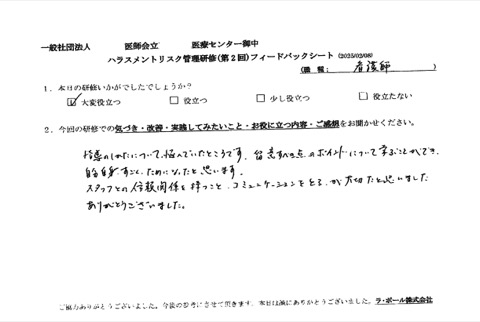 一般社団法人 医師会立 医療センター御中
ハラスメントリスク管理研修(第2回)フィードバックシート (2025/02/08)
(職種: 看護師 )
1. 本日の研修いかがでしたでしょうか?
☑ 大変役立つ □ 役立つ □ 少し役立つ □ 役立たない
2. 今回の研修での気づき・改善・実践してみたいこと・お役に立つ内容・ご感想をお聞かせください。
指導のしかたについて、悩んでいたところです。留意すべき点のポイントについて学ぶことができ、
自分自身すごくためになったと思います。
スタッフとの信頼関係を持つこと、コミュニケーションをとる、が大切だと思いました
ありがとうございました。
ご協力ありがとうございました。今後の参考にさせて頂きます。本日は誠にありがとうございました。ラ・ポール株式会社